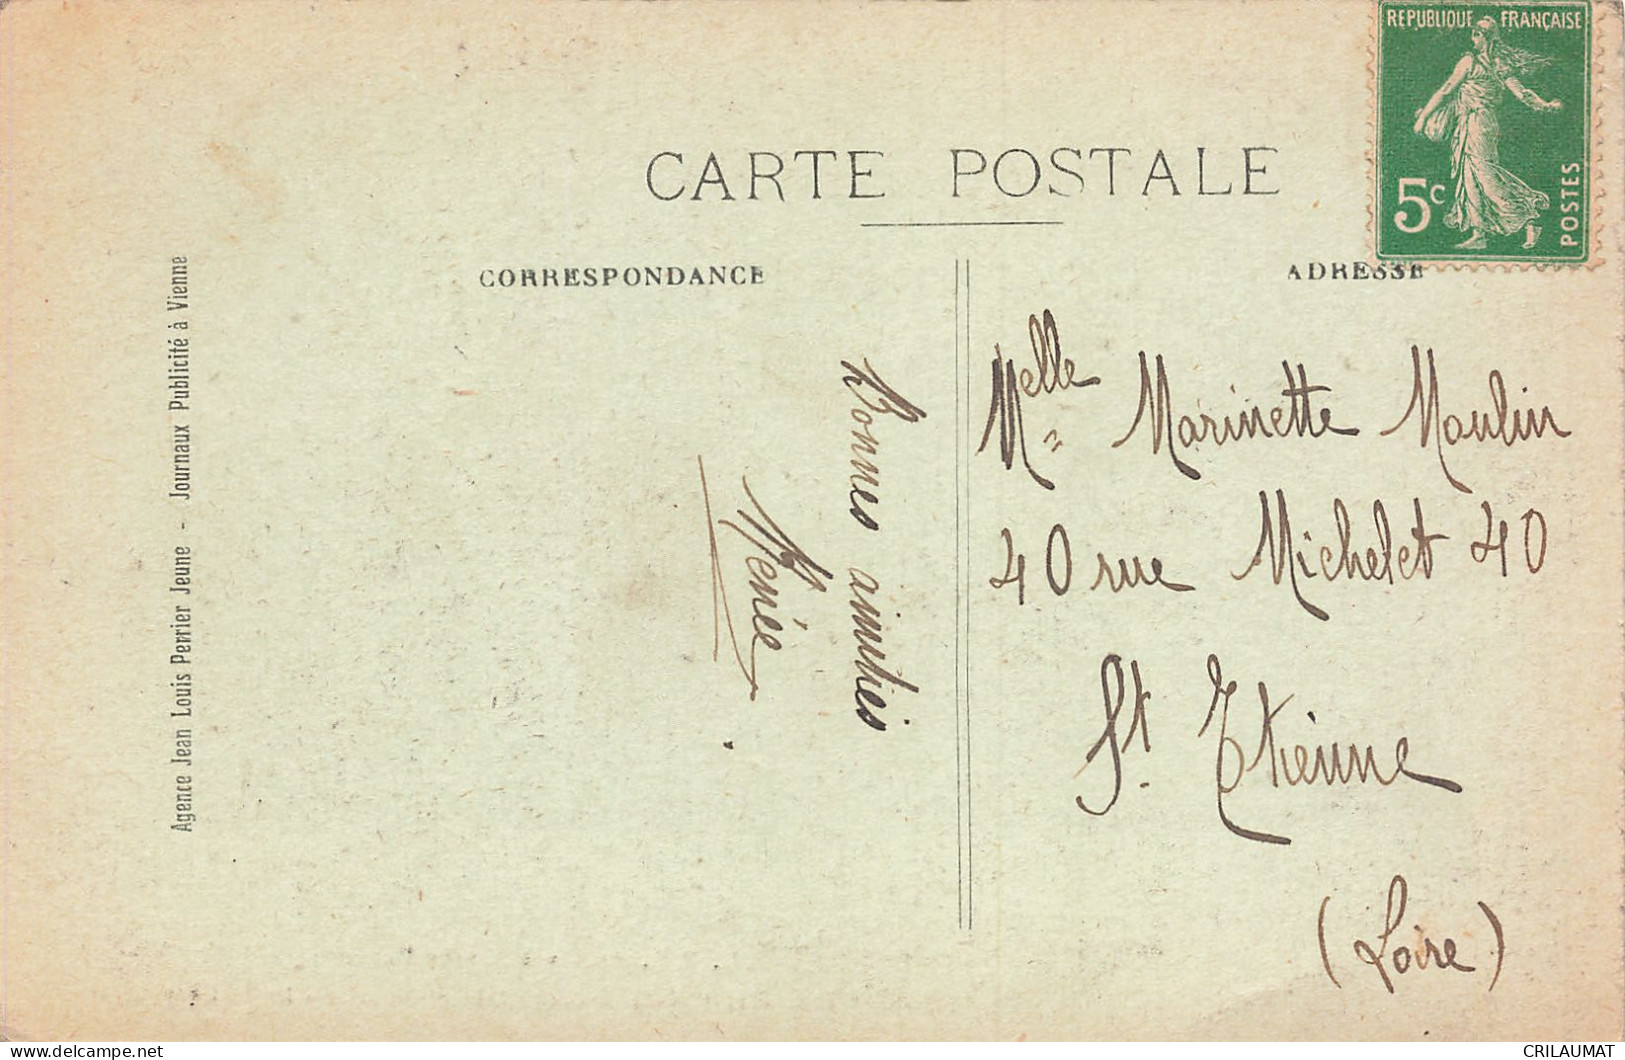 REPUBLIQUE FRANÇAISE
5c
POSTES
CARTE POSTALE
CORRESPONDANCE
ADRESSE
Agence Jean Louis Perrier Jeune - Journaux Publicité à Vienne
Bonnes amitiés
Renée
Melle Marinette Moulin
40 rue Michelet 40
St. Etienne
(Loire)
www.delcampe.net
CRILAUMAT